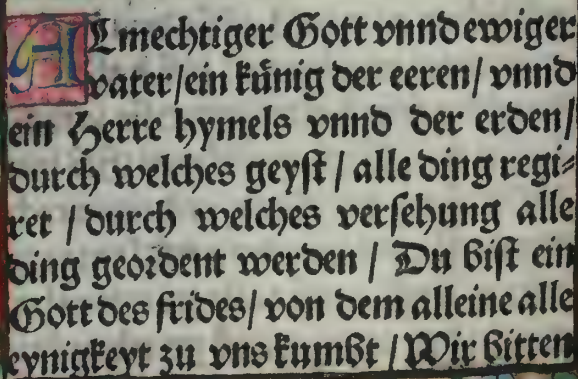 ALmechtiger Gott vnnd ewiger
vater/ein künig der eeren/ vnnd
ein Herre hymels vnnd der erden/
durch welches geyst / alle ding regi⸗
ret / durch welches versehung alle
ding geordent werden / Du bist ein
Gott des frides/ von dem alleine alle
eynigkeyt zu vns kumbt / Wir bitten